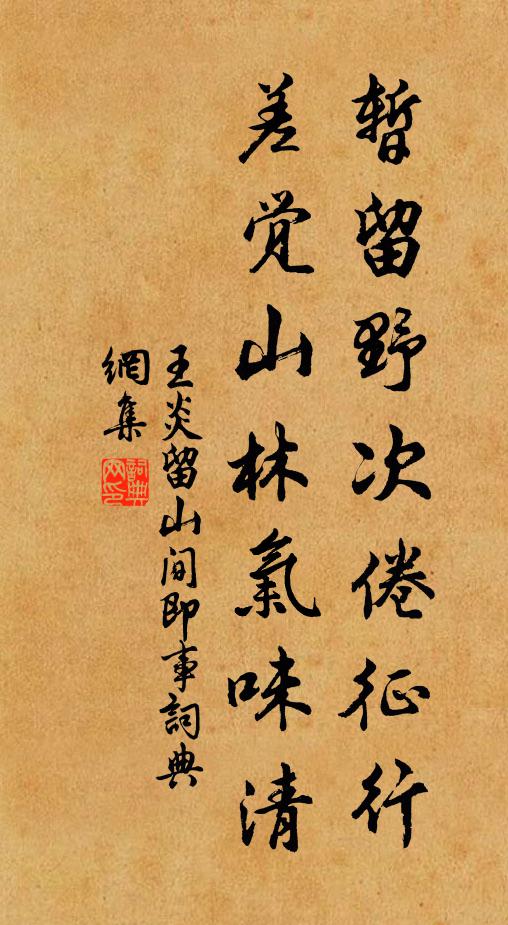 暫留野次倦征行
差覺山林氣味清
王炎留山間即事詞典
網集
詞典
网印